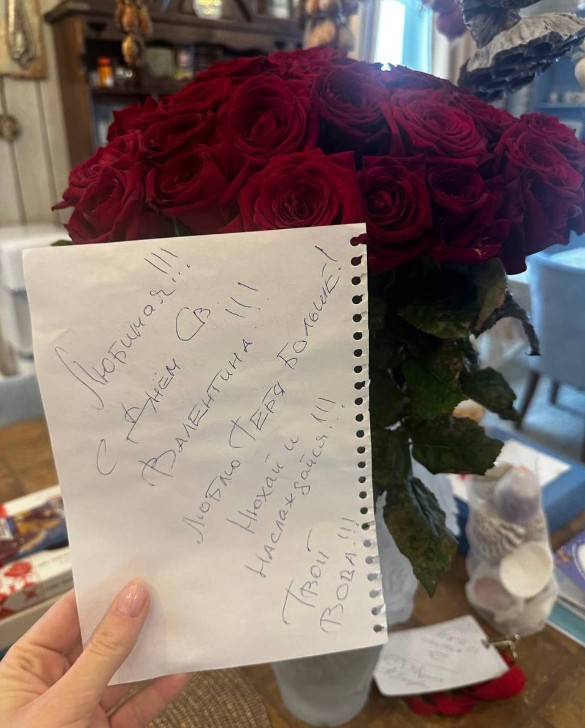 Любимая!!!
С Днём Св.
Валентина!!!
Люблю Тебя больше!
Нюхай и
наслаждайся!!!
Твой
Вова!!!